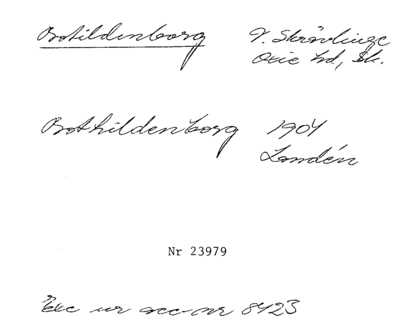 Botildenborg V. Skrävlinge
Oxie hd, Sk.
Bothildenborg 1904
Landén
Nr 23979
Exc ur acc-nr 8423